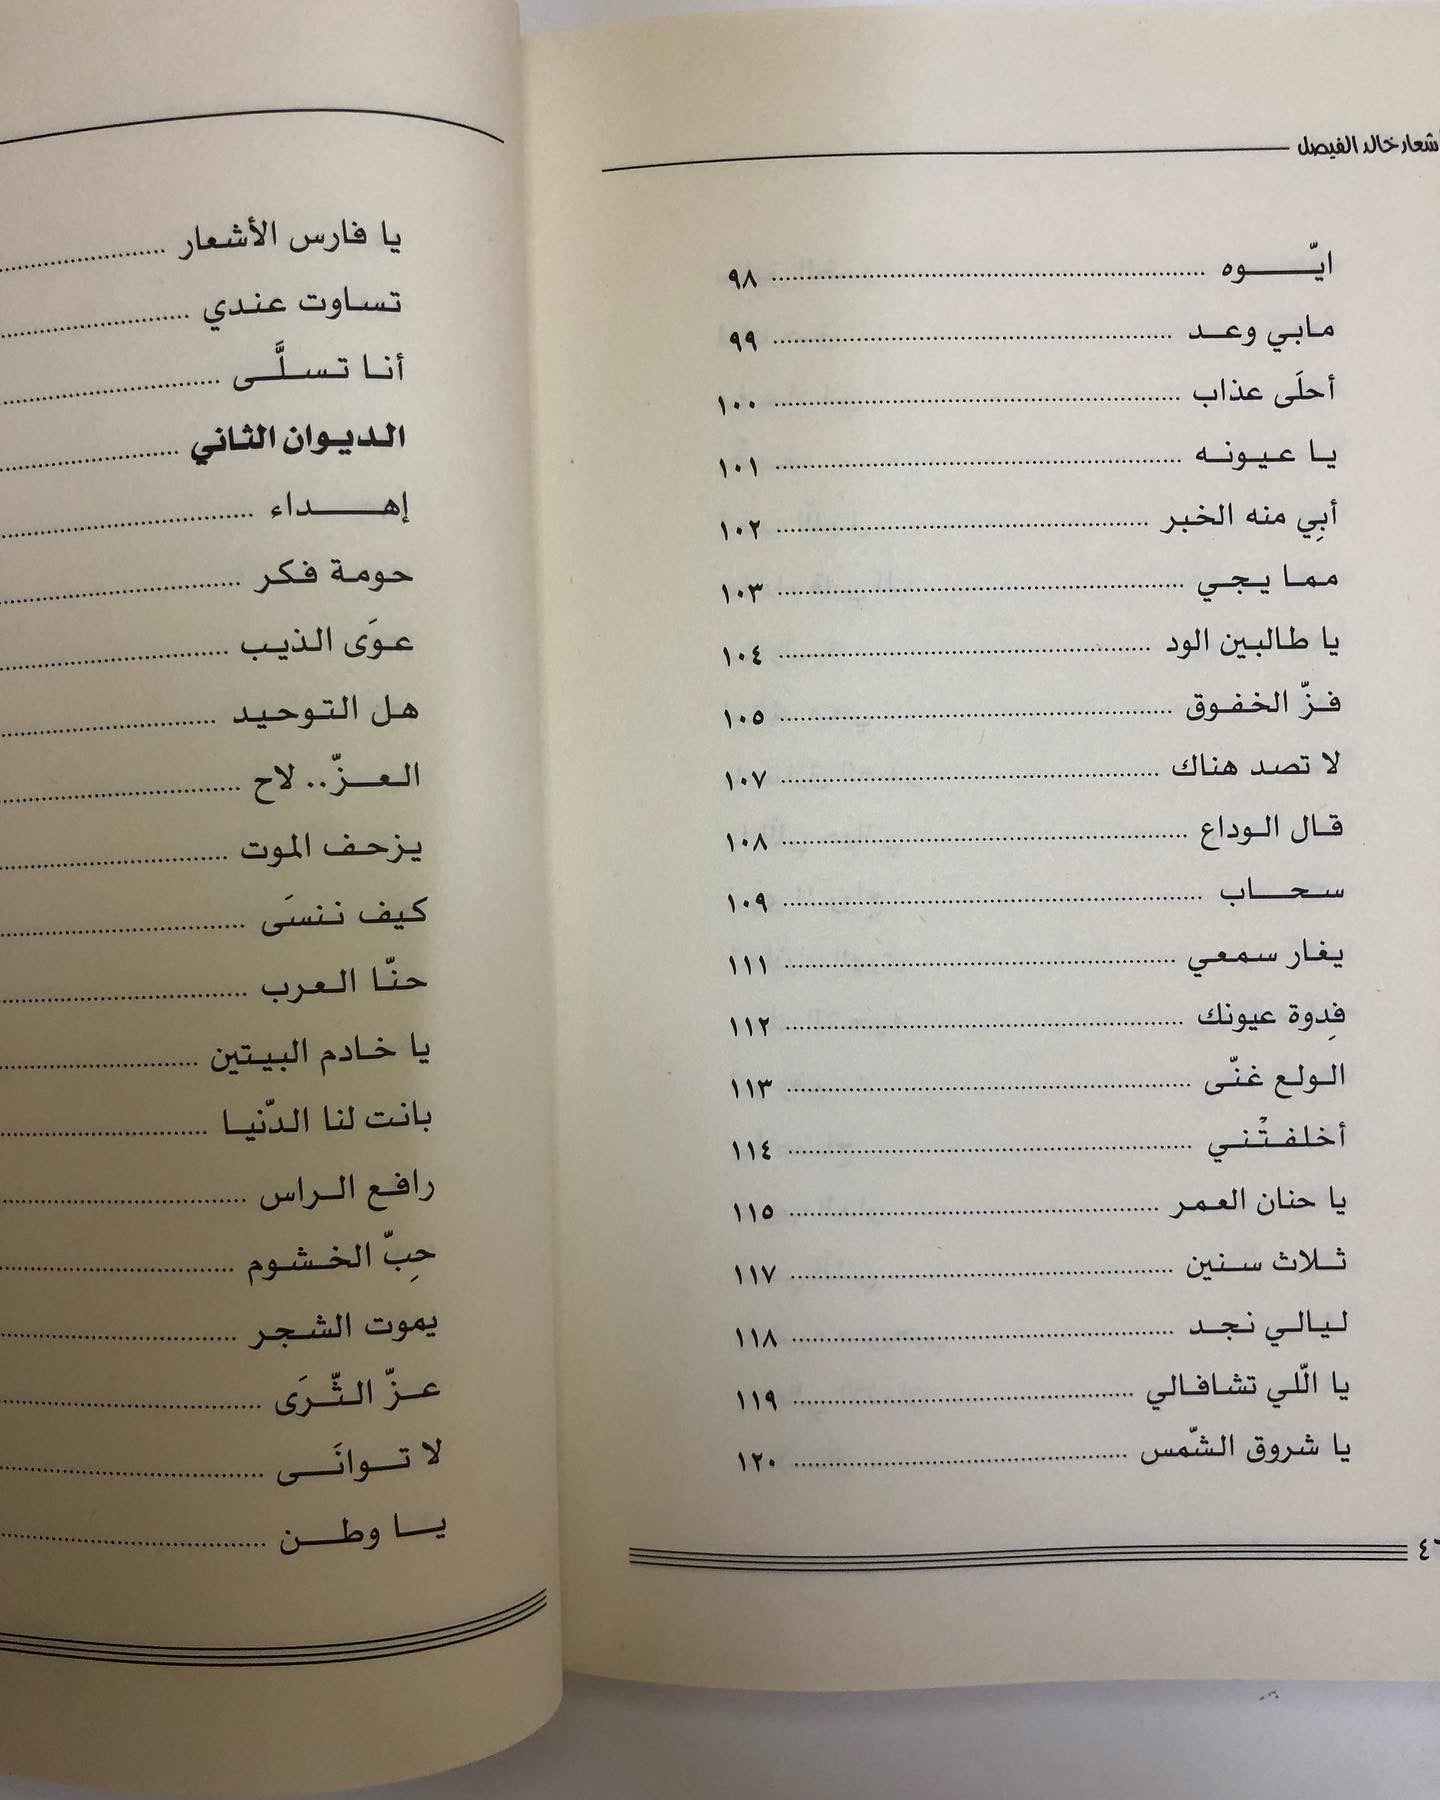 أشعار خالد الفيصل
ايّـــــوه ........ ٩٨
مابي وعـد ........ ٩٩
أحلَى عذاب ........ ١٠٠
يـا عـيـونـه ........ ١٠١
أبِي منه الخبر ........ ١٠٢
ممـا يـجـي ........ ١٠٣
يا طالبين الود ........ ١٠٤
فـزّ الخفوق ........ ١٠٥
لا تصد هناك ........ ١٠٧
قـال الـوداع ........ ١٠٨
سـحـــاب ........ ١٠٩
يغار سمعي ........ ١١١
فِدوة عيونك ........ ١١٢
الـولـع غنّى ........ ١١٣
أخلفـتْـني ........ ١١٤
يا حنان العمر ........ ١١٥
ثـلاث سـنين ........ ١١٧
ليالي نجـد ........ ١١٨
يا الّلي تشافـالي ........ ١١٩
يا شروق الشّمس ........ ١٢٠
يا فارس الأشعار ........
تساوت عندي ........
أنـا تـسـلَّـى ........
الديوان الثاني ........
إهــــداء ........
حومة فكر ........
عـوَى الذيب ........
هل التوحيد ........
الـعـزّ.. لاح ........
يـزحـف الموت ........
كيف ننسَى ........
حنّـا الـعرب ........
يا خـادم البيتين ........
بانت لنا الدّنيـا ........
رافـع الـراس ........
حِبّ الخـشوم ........
يموت الشـجر ........
عـزّ الـثّـرَى ........
لا تـوانَـى ........
يـا وطـن ........